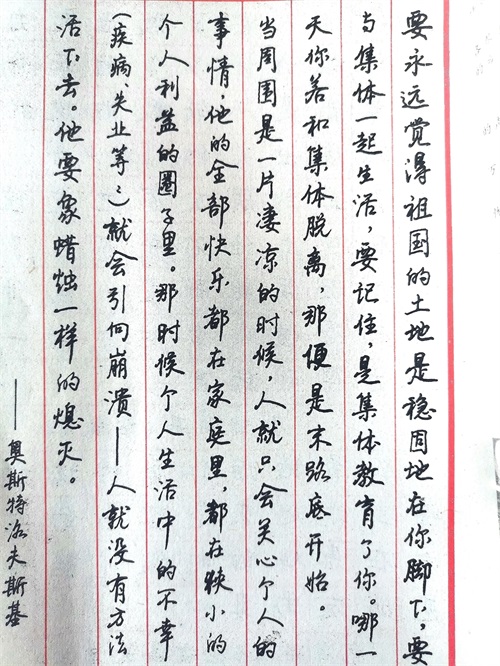 要永远觉得祖国的土地是稳固地在你脚下，要
与集体一起生活，要记住，是集体教育了你。哪一
天你若和集体脱离，那便是末路底开始。
当周围是一片凄凉的时候，人就只会关心个人的
事情，他的全部快乐都在家庭里，都在狭小的
个人利益的圈子里。那时候个人生活中的不幸
（疾病、失业等等）就会引向崩溃——人就没有方法
活下去。他要象蜡烛一样的熄灭。
——奥斯特洛夫斯基